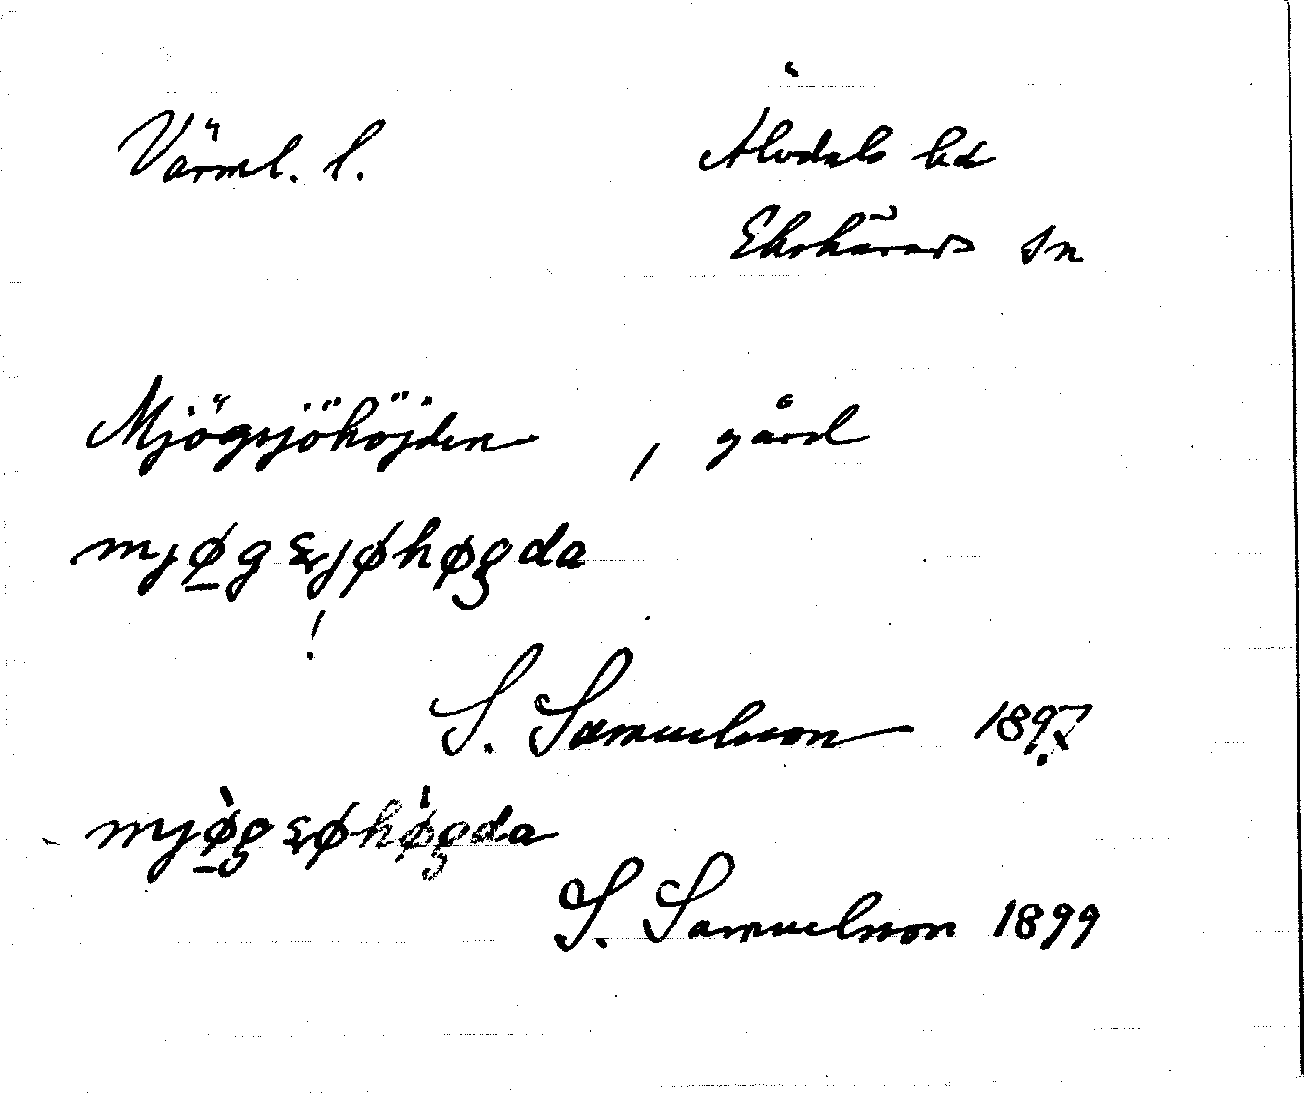 Värml. l. Älvdals hd
Ekshärads sn
Mjögsjöhöjden, gård
mjøgsjøhøgda
!
S. Samuelsson 1897
mjø̀gsøhø̀gda
S. Samuelsson 1899